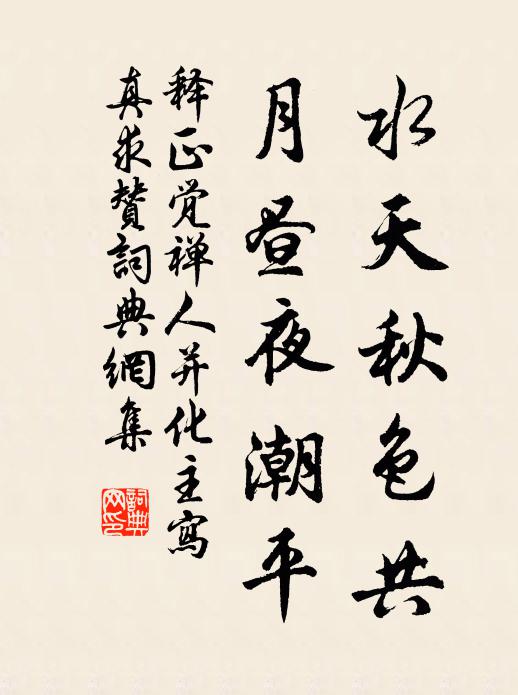 水天秋色共
月昼夜潮平
释正觉禅人并化主寫
真求贊詞典網集
詞典网印